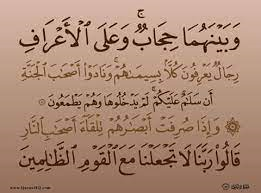 وَبَيْنَهُمَا حِجَابٌ ۚ وَعَلَى ٱلْأَعْرَافِ
رِجَالٌ يَعْرِفُونَ كُلًّۢا بِسِيمَىٰهُمْ ۚ وَنَادَوْا۟ أَصْحَٰبَ ٱلْجَنَّةِ
أَن سَلَٰمٌ عَلَيْكُمْ ۚ لَمْ يَدْخُلُوهَا وَهُمْ يَطْمَعُونَ
۞ وَإِذَا صُرِفَتْ أَبْصَٰرُهُمْ تِلْقَآءَ أَصْحَٰبِ ٱلنَّارِ
قَالُوا۟ رَبَّنَا لَا تَجْعَلْنَا مَعَ ٱلْقَوْمِ ٱلظَّٰلِمِينَ